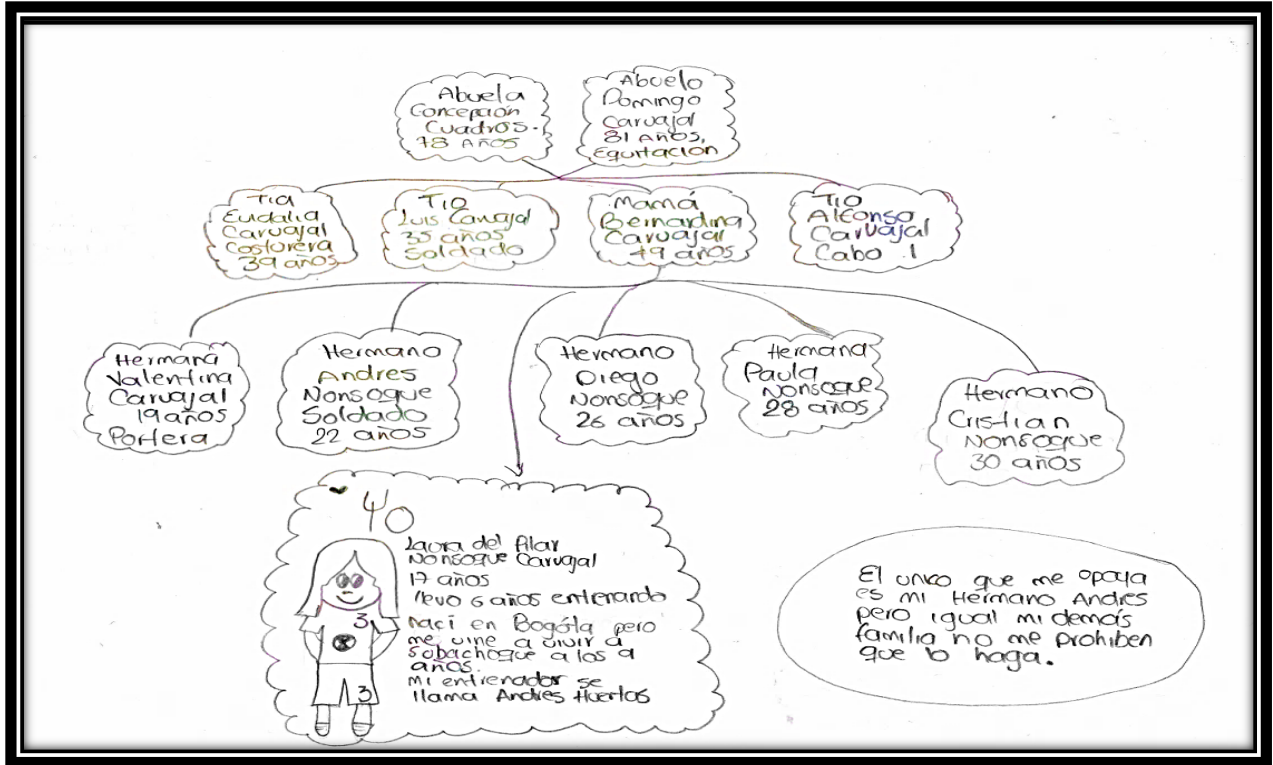 Abuela
Concepción
Cuadros.
78 Años
Abuelo
Domingo
Carvajal
81 Años,
Equitación
Tia
Eudalia
Carvajal
Costurera
39 años
Tio
Luis Carvajal
35 años
Soldado
Mamá
Bernardina
Carvajal
49 años
Tio
Alfonso
Carvajal
Cabo 1
Hermana
Valentina
Carvajal
19 años
Portera
Hermano
Andres
Nonsoque
Soldado
22 años
Hermano
Diego
Nonsoque
26 años
Hermana
Paula
Nonsoque
28 años
Hermano
Cristian
Nonsoque
30 años
Yo
Laura del Pilar
Nonsoque Carvajal
17 años
llevo 6 años entrenando
naci en Bogóta pero
me vine a vivir a
Subachoque a los 9
años.
mi entrenador se
llama Andres Huertas
3
3
El unico que me apoya
es mi Hermano Andres
pero igual mi demás
familia no me prohiben
que lo haga.